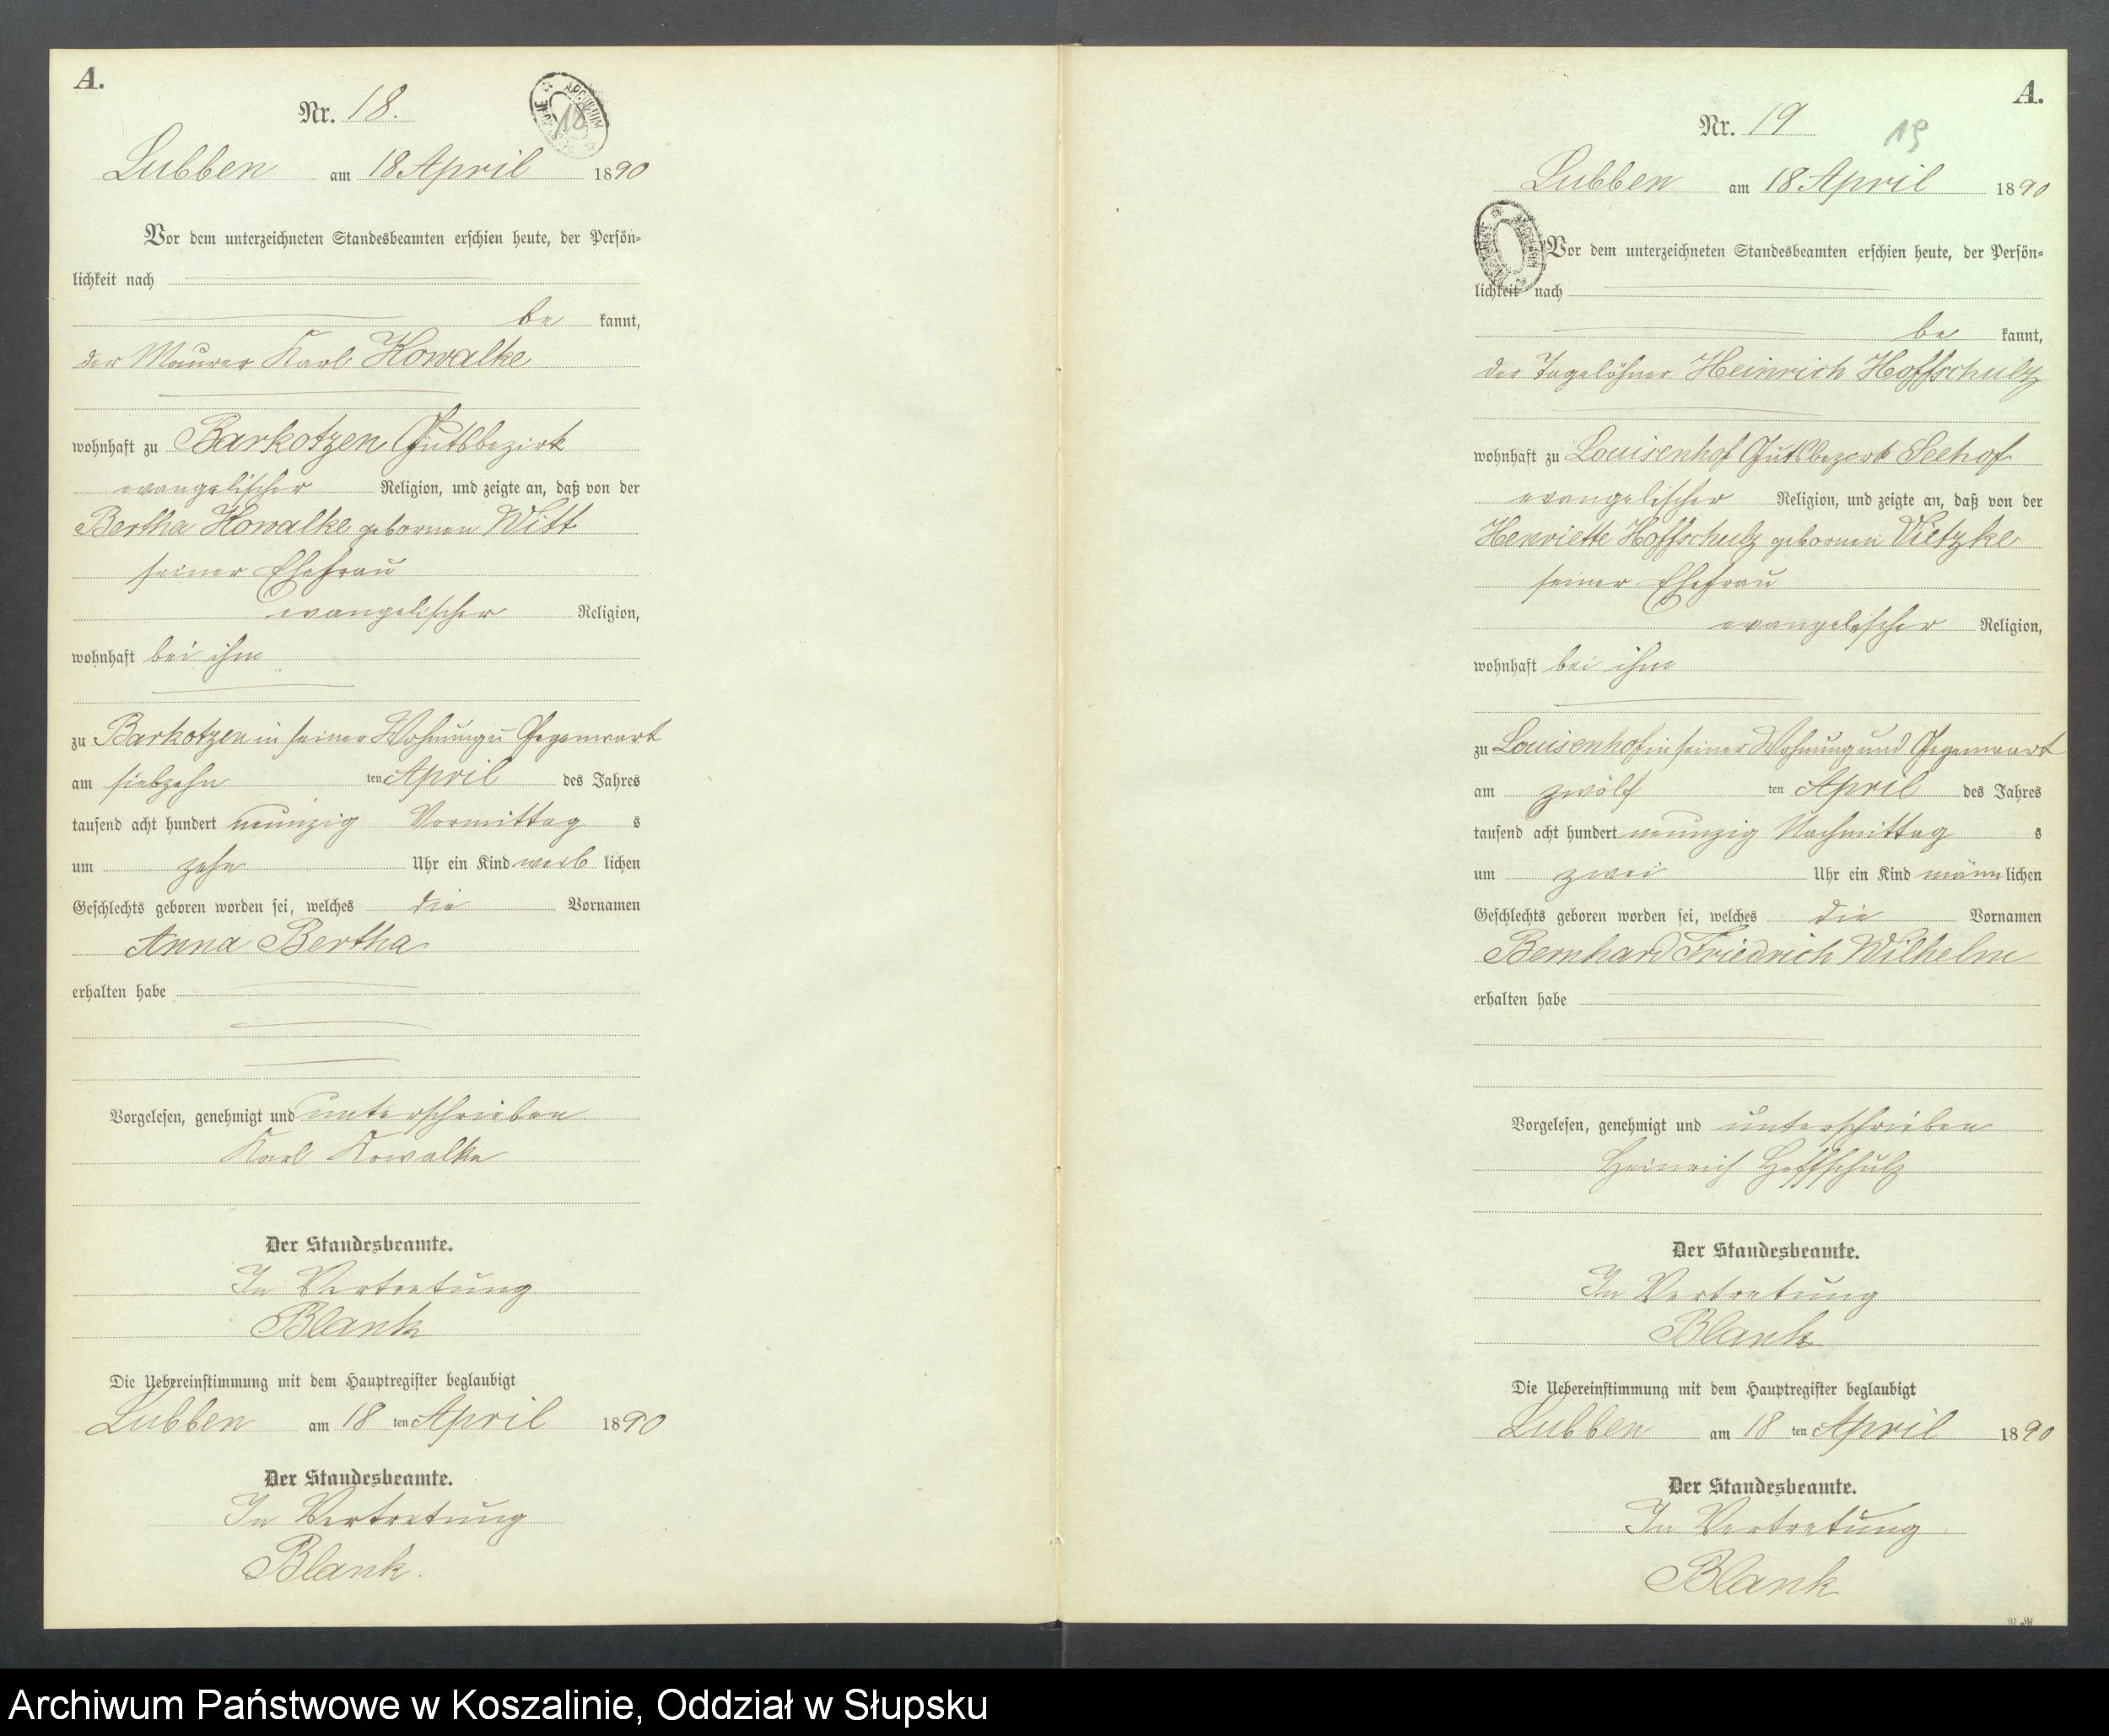 A.
Nr. 18.
18
Lubben am 18 April 1890
Vor dem unterzeichneten Standesbeamten erschien heute, der Persön-
lichkeit nach
be kannt,
der Maurer Karl Kowalke
wohnhaft zu Barkotzen Gutsbezirk
evangelischer Religion, und zeigte an, daß von der
Bertha Kowalke gebornen Witt
seiner Ehefrau
evangelischer Religion,
wohnhaft bei ihm
zu Barkotzen in seiner Wohnung u Gegenwart
am siebzehn ten April des Jahres
tausend acht hundert neunzig Vormittag s
um zehn Uhr ein Kind weib lichen
Geschlechts geboren worden sei, welches die Vornamen
Anna Bertha
erhalten habe
Vorgelesen, genehmigt und unterschrieben
Karl Kowalke
Der Standesbeamte.
In Vertretung
Blank
Die Uebereinstimmung mit dem Hauptregister beglaubigt
Lubben am 18 ten April 1890
Der Standesbeamte.
In Vertretung
Blank.
A.
Nr. 19
19
Lubben am 18 April 1890
Vor dem unterzeichneten Standesbeamten erschien heute, der Persön-
lichkeit nach
be kannt,
der Tagelöhner Heinrich Hoffschulz
wohnhaft zu Louisenhof Gutsbezirk Seehof
evangelischer Religion, und zeigte an, daß von der
Henriette Hoffschulz gebornen Vietzke
seiner Ehefrau
evangelischer Religion,
wohnhaft bei ihm
zu Louisenhof in seiner Wohnung und Gegenwart
am zwölf ten April des Jahres
tausend acht hundert neunzig Nachmittag s
um zwei Uhr ein Kind männ lichen
Geschlechts geboren worden sei, welches die Vornamen
Bernhard Friedrich Wilhelm
erhalten habe
Vorgelesen, genehmigt und unterschrieben
Heinrich Hoffschulz
Der Standesbeamte.
In Vertretung
Blank
Die Uebereinstimmung mit dem Hauptregister beglaubigt
Lubben am 18 ten April 1890
Der Standesbeamte.
In Vertretung
Blank
Archiwum Państwowe w Koszalinie, Oddział w Słupsku